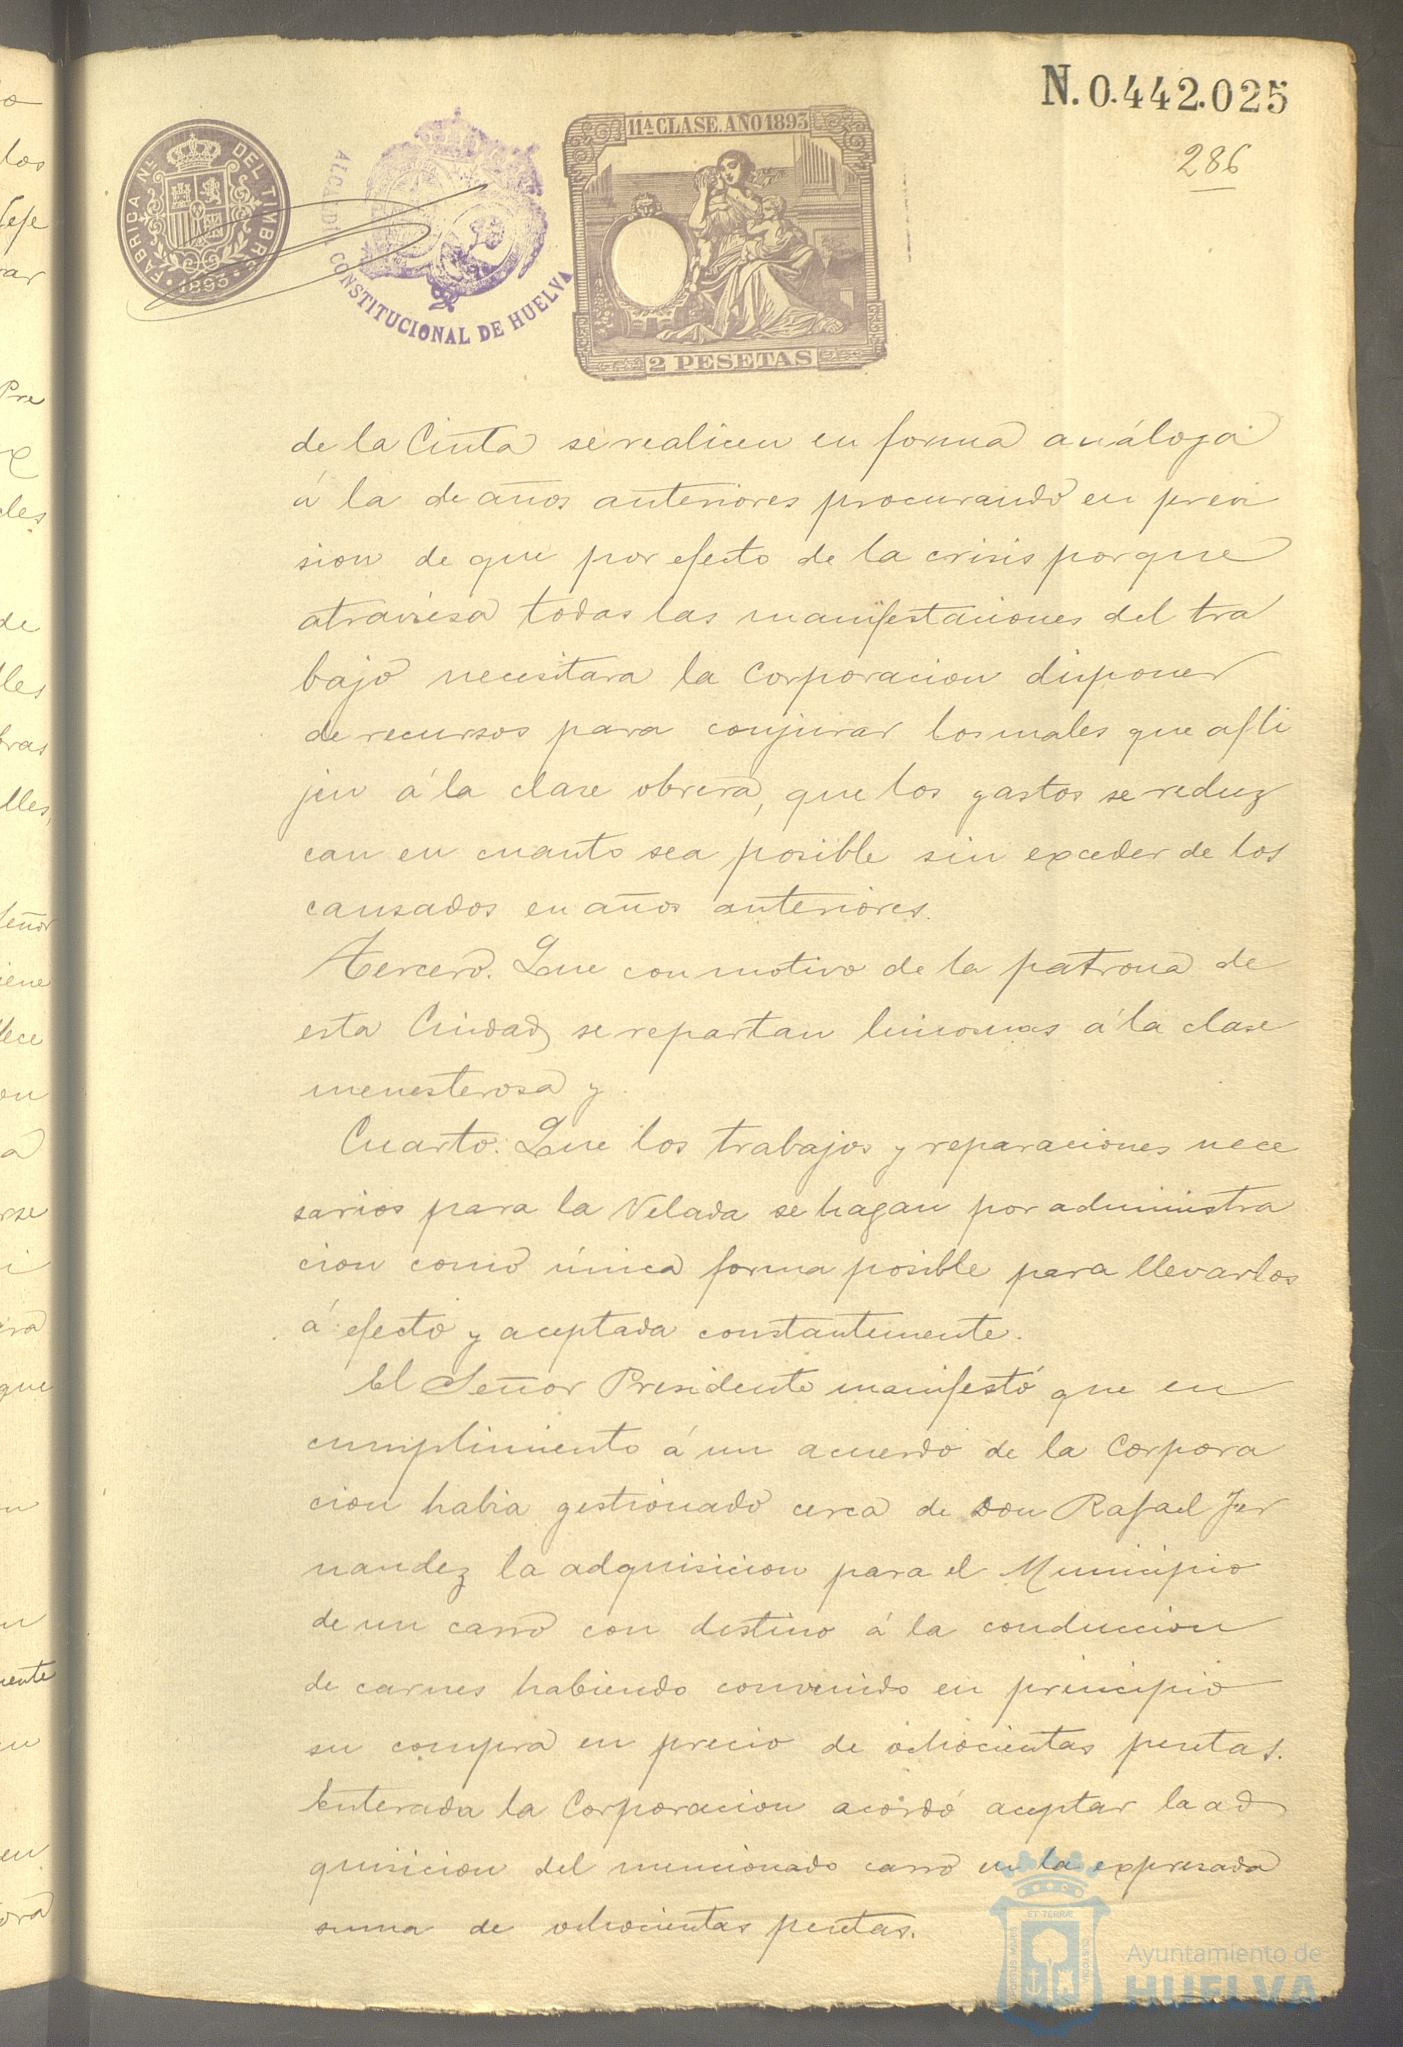 N. 0.442.025
286
FABRICA NL. DEL TIMBRE
1893
ALCALDIA CONSTITUCIONAL DE HUELVA
11ª CLASE. AÑO 1893
2 PESETAS
de la Cinta se realicen en forma análoga
á la de años anteriores procurando en previ
sion de que por efecto de la crisis porque
atraviesa todas las manifestaciones del tra
bajo necesitara la Corporacion disponer
de recursos para conjurar los males que afli
jen á la clase obrera, que los gastos se reduz
can en cuanto sea posible sin exceder de los
causados en años anteriores.
Tercero. Que con motivo de la patrona de
esta Ciudad, se repartan limosnas á la clase
menesterosa y
Cuarto. Que los trabajos y reparaciones nece
sarios para la Velada se hagan por administra
cion como única forma posible para llevarlos
á efecto y aceptada constantemente.
El Señor Presidente manifestó que en
cumplimiento á un acuerdo de la Corpora
cion habia gestionado cerca de Don Rafael Fer
nandez la adquisicion para el Municipio
de un carro con destino á la conduccion
de carnes habiendo convenido en principio
su compra en precio de ochocientas pesetas.
Enterada la Corporacion acordó aceptar la ad
quisicion del mencionado carro en la expresada
suma de ochocientas pesetas.
Ayuntamiento de
HUELVA